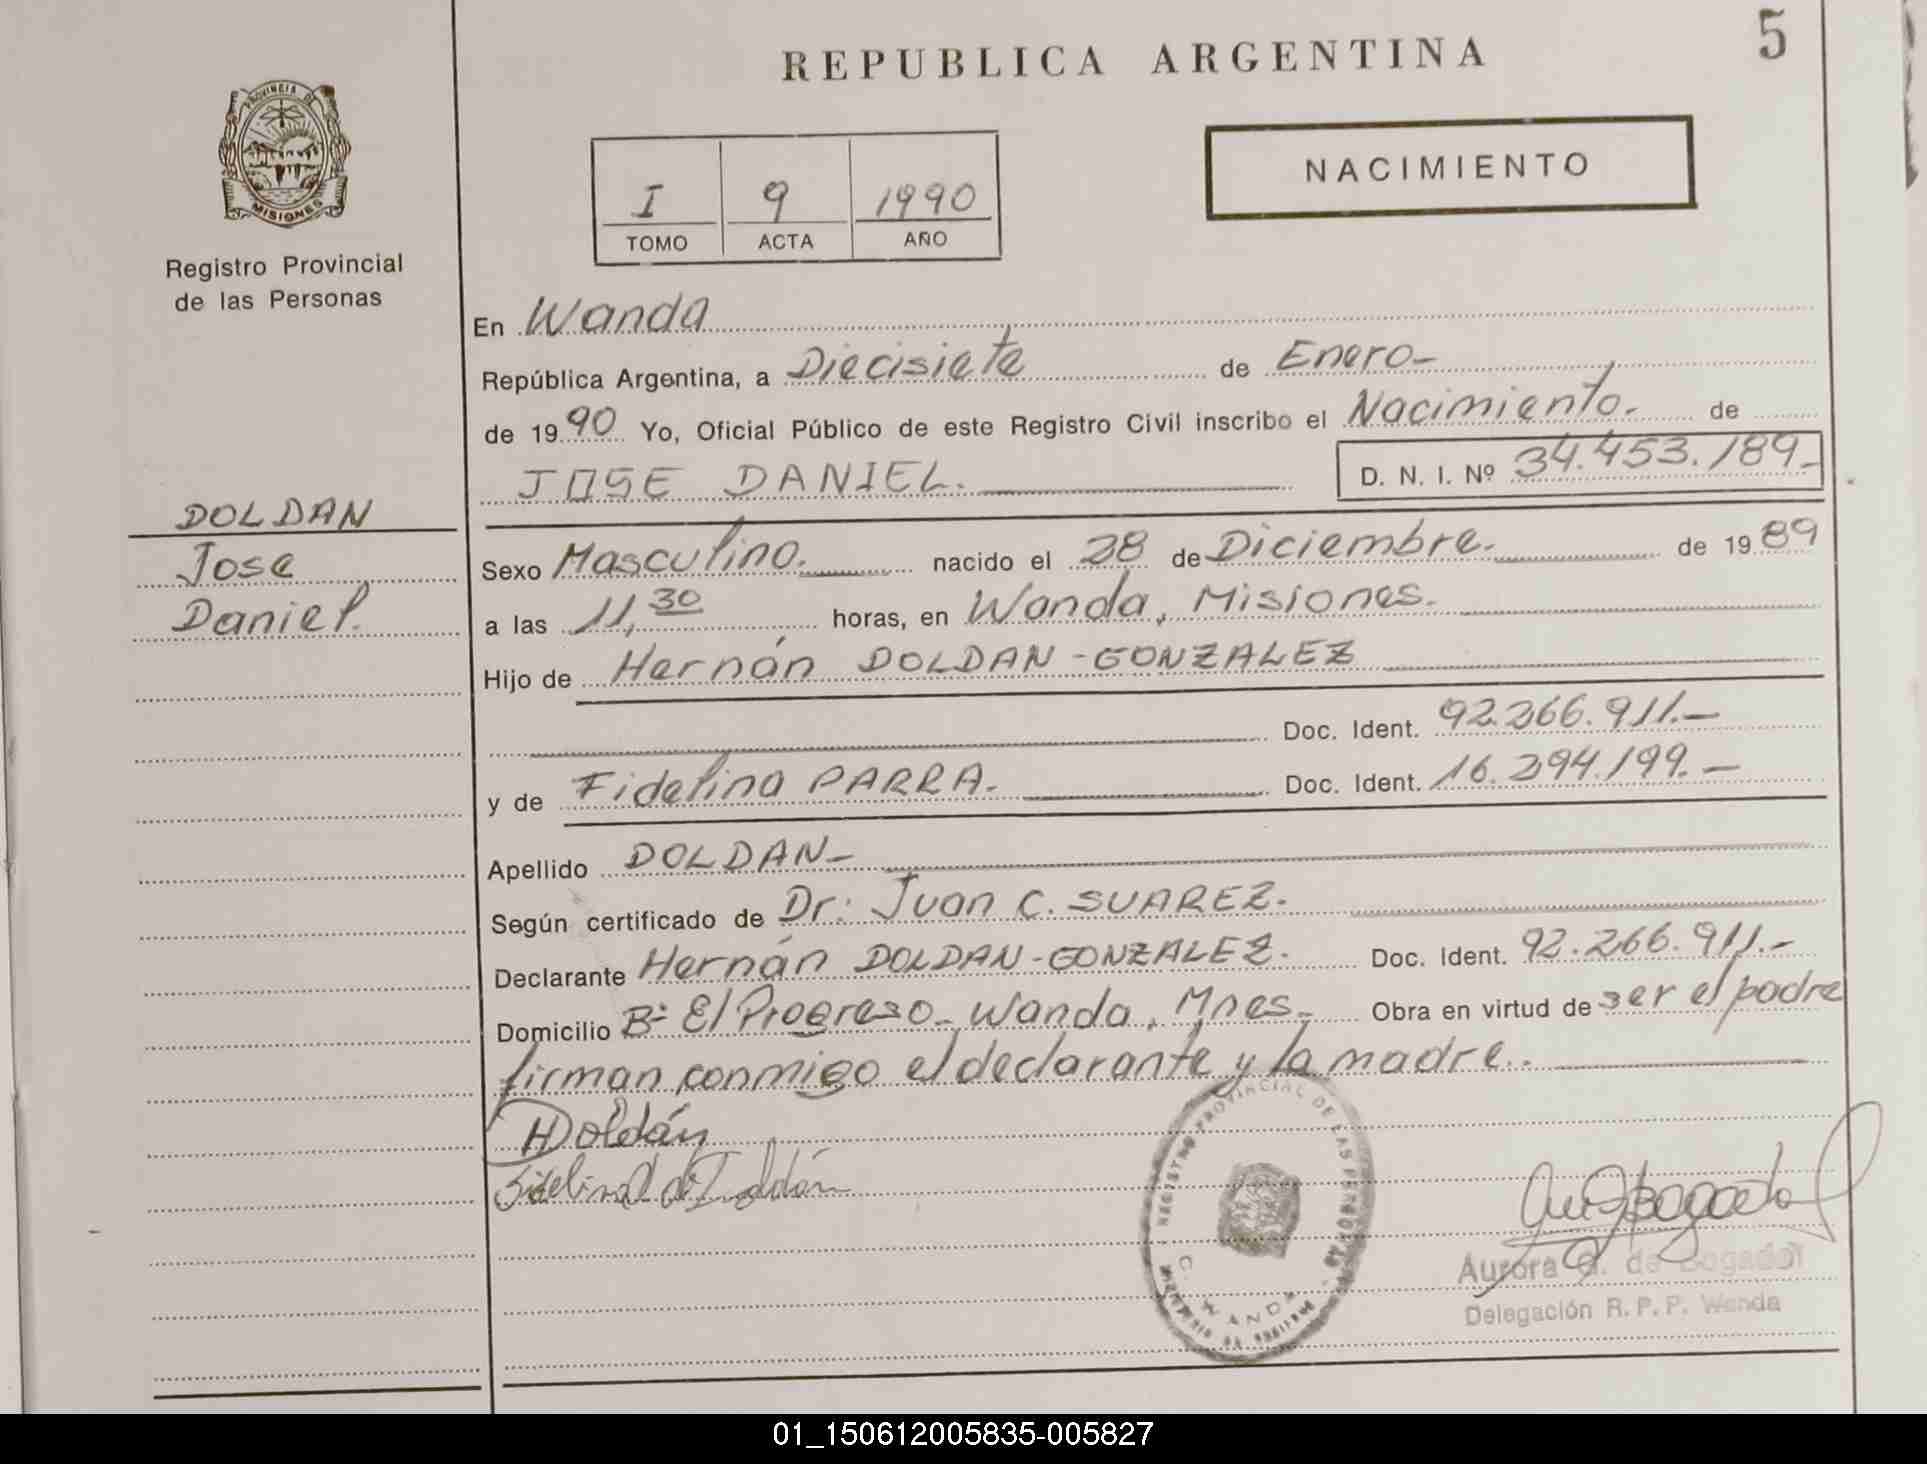 REPUBLICA ARGENTINA
5
PROVINCIA DE
MISIONES
Registro Provincial
de las Personas
I 9 1990
TOMO ACTA AÑO
NACIMIENTO
En Wanda
República Argentina, a Diecisiete de Enero-
de 1990 Yo, Oficial Público de este Registro Civil inscribo el Nacimiento. de
JOSE DANIEL. D. N. I. Nº 34.453.189-
DOLDAN
Jose
Daniel.
Sexo Masculino. nacido el 28 de Diciembre. de 1989
a las 11,30 horas, en Wanda, Misiones.
Hijo de Hernán DOLDAN-GONZALEZ
Doc. Ident. 92.266.911.-
y de Fidelina PARRA. Doc. Ident. 16.294.199.-
Apellido DOLDAN-
Según certificado de Dr: Juan C. SUAREZ.
Declarante Hernán DOLDAN-GONZALEZ. Doc. Ident. 92.266.911.-
Domicilio Bº El Progreso-Wanda, Mnes- Obra en virtud de ser el padre
firman conmigo el declarante y la madre..
HDoldán
Fidelina de Doldán
REGISTRO PROVINCIAL DE LAS PERSONAS
WANDA
Aurora G. de Bogado
Delegación R. P. P. Wanda
01_150612005835-005827